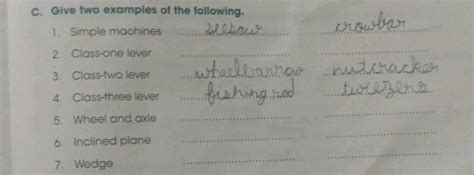 C. Give two examples of the following.
1. Simple machines seesaw crowbar
2. Class-one lever
3. Class-two lever wheelbarrow nutcracker
4. Class-three lever fishing rod tweezers
5. Wheel and axle
6. Inclined plane
7. Wedge